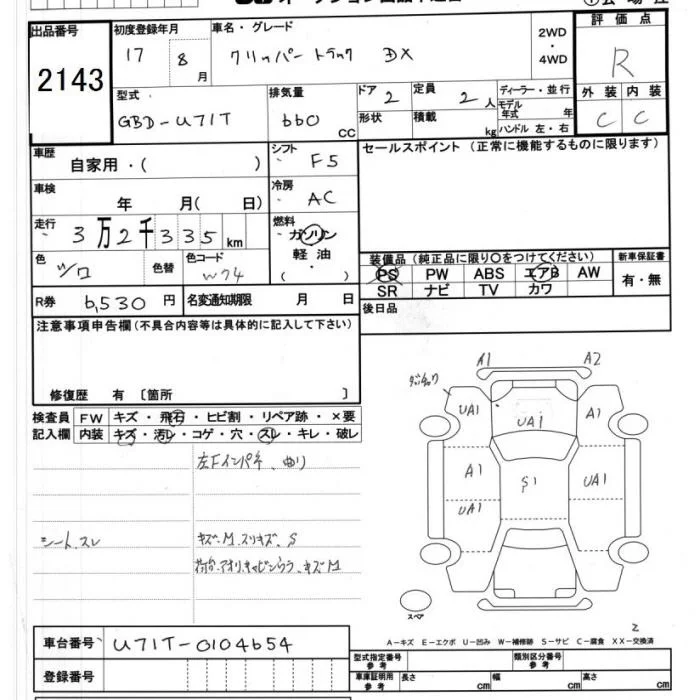 出品番号 初度登録年月 車名・グレード 2WD ・ 4WD 評価点
2143 17 8月 クリッパー トラック DX R
型式 排気量 ドア 定員 ディーラー・並行 外装 内装
GBD-U71T 660 CC 2 2人 モデル年式 年 C C
形状 積載 kg ハンドル 左・右
車歴 自家用・( ) シフト F5 セールスポイント (正常に機能するものに限ります)
車検 年 月( 日) 冷房 AC
走行 3万2千335km 燃料 ガソリン
軽油
( )
色 シロ 色替 色コード W74 装備品 (純正品に限り○をつけてください) 新車保証書
PS PW ABS エアB AW 有・無
SR ナビ TV カワ
R券 6,530円 名変通知期限 月 日 後日品
注意事項申告欄 (不具合内容等は具体的に記入して下さい)
修復歴 有 〔箇所 〕
検査員 FW キズ・飛石・ヒビ割・リペア跡・×要
記入欄 内装 キズ・汚レ・コゲ・穴・スレ・キレ・破レ
左Fインパネ、曲り
シート、スレ キズ、M、スリキズ、S
荷台、アオリ、キャビンウラ、キズM
A1 A2
UA1 UA1 A1
A1 S1 UA1
UA1
スペア
2
A-キズ E-エクボ U-凹み W-補修跡 S-サビ C-腐食 XX-交換済
車台番号 U71T-0104654 型式指定番号 参考 類別区分番号 参考
登録番号 車庫証明用 参考 長さ cm 幅 cm 高さ cm